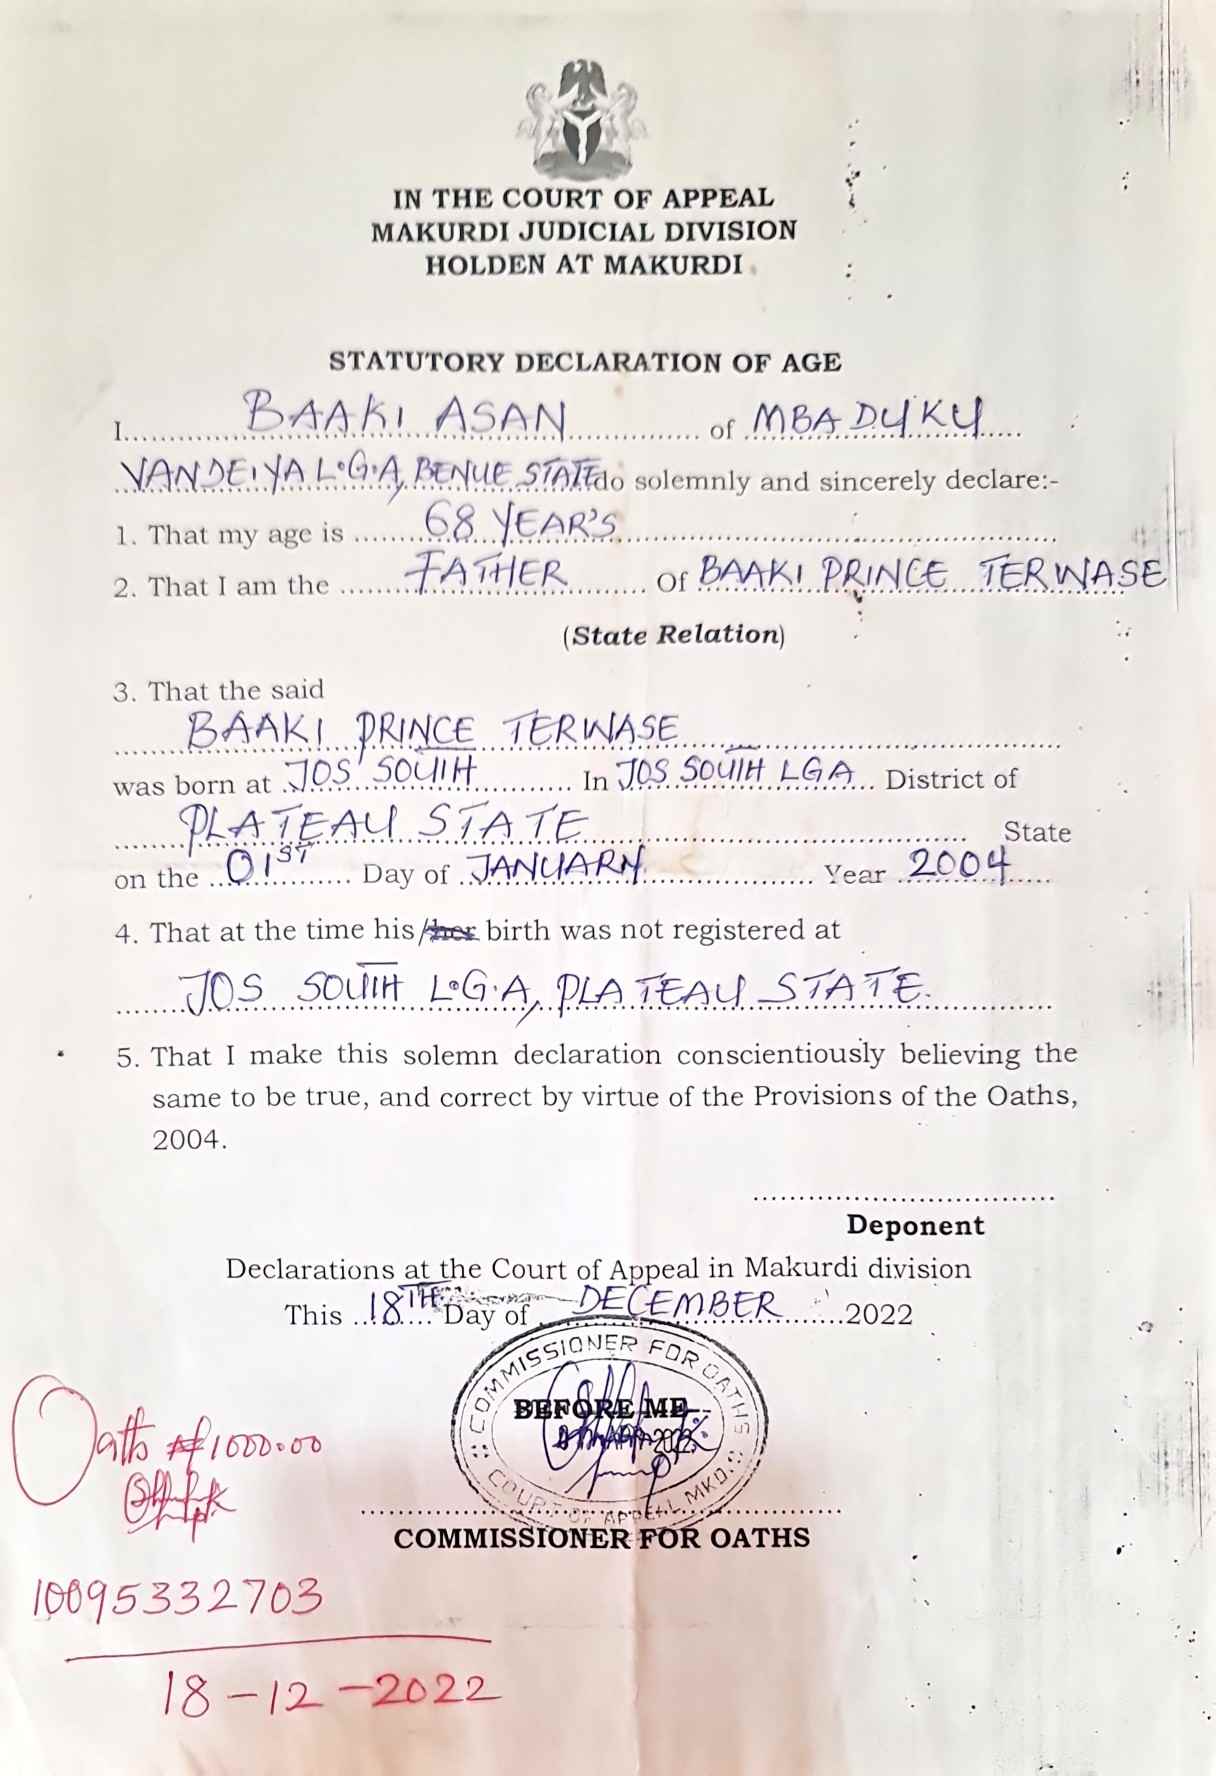 IN THE COURT OF APPEAL
MAKURDI JUDICIAL DIVISION
HOLDEN AT MAKURDI
STATUTORY DECLARATION OF AGE
I BAAKI ASAN of MBADUKU
VANDEIYA L.G.A, BENUE STATE do solemnly and sincerely declare:-
1. That my age is 68 YEAR'S
2. That I am the FATHER Of BAAKI PRINCE TERWASE
(State Relation)
3. That the said
BAAKI PRINCE TERWASE
was born at JOS SOUTH In JOS SOUTH LGA District of
PLATEAU STATE State
on the 01ST Day of JANUARY Year 2004
4. That at the time his/her birth was not registered at
JOS SOUTH L.G.A, PLATEAU STATE.
5. That I make this solemn declaration conscientiously believing the
same to be true, and correct by virtue of the Provisions of the Oaths,
2004.
Deponent
Declarations at the Court of Appeal in Makurdi division
This 18TH Day of DECEMBER 2022
COMMISSIONER FOR OATHS
BEFORE ME
COURT OF APPEAL MKD.
COMMISSIONER FOR OATHS
Oaths ₦1000.00
10095332703
18-12-2022